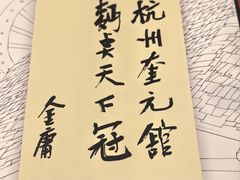 杭州奎元舘
麵奌天下冠
金庸